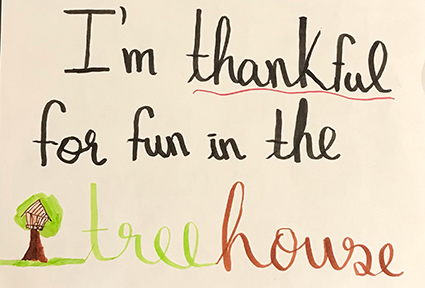 I'm thankful
for fun in the
treehouse